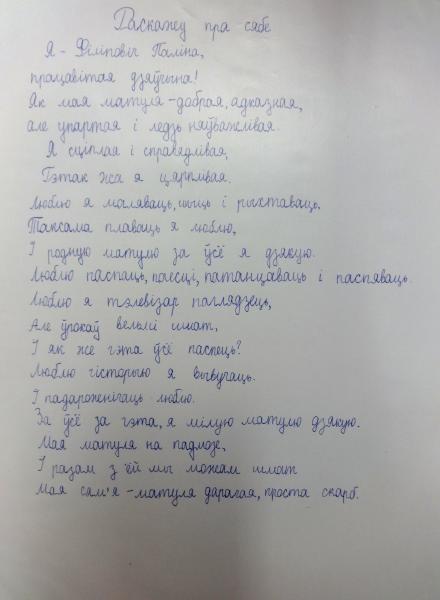 Расказжед пра сябе
Я - Філіповіч Паліна,
працавітая дзяўчына!
Як мая матуля - добрая, адказная,
але упартая і ледзь няўважлівая.
Я сціплая і справядлівая,
Гэтак жа я цярплівая.
Люблю я маляваць, шыць і рыхтаваць,
Таксама плаваць я люблю,
І родную матулю за ўсё я дзякую.
Люблю паспаць, паесці, патанцаваць і паспяваць.
Люблю я тэлевізар паглядзець,
Але ўрокаў вельмі шмат,
І як же гэта ўсё паспець?
Люблю гісторыю я вывучаць.
І падарожнічаць люблю.
За ўсё за гэта, я мілую матулю дзякую.
Мая матуля на падмозе,
І разам з ёй мы можам шмат
Мая сям'я - матуля дарагая, проста скарб.